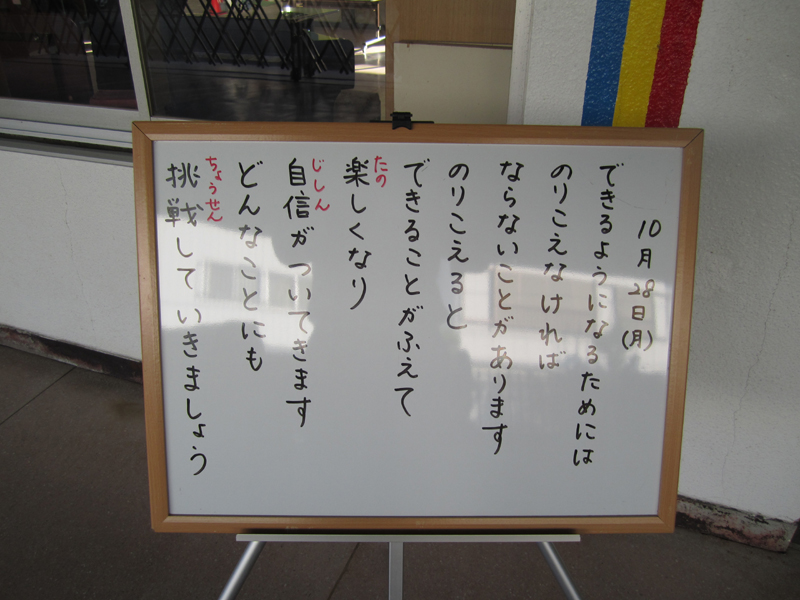 10月28日(月)
できるようになるためには
のりこえなければ
ならないことがあります
のりこえると
できることがふえて
楽しくなり
たの
自信がついてきます
じしん
どんなことにも
挑戦していきましょう
ちょうせん